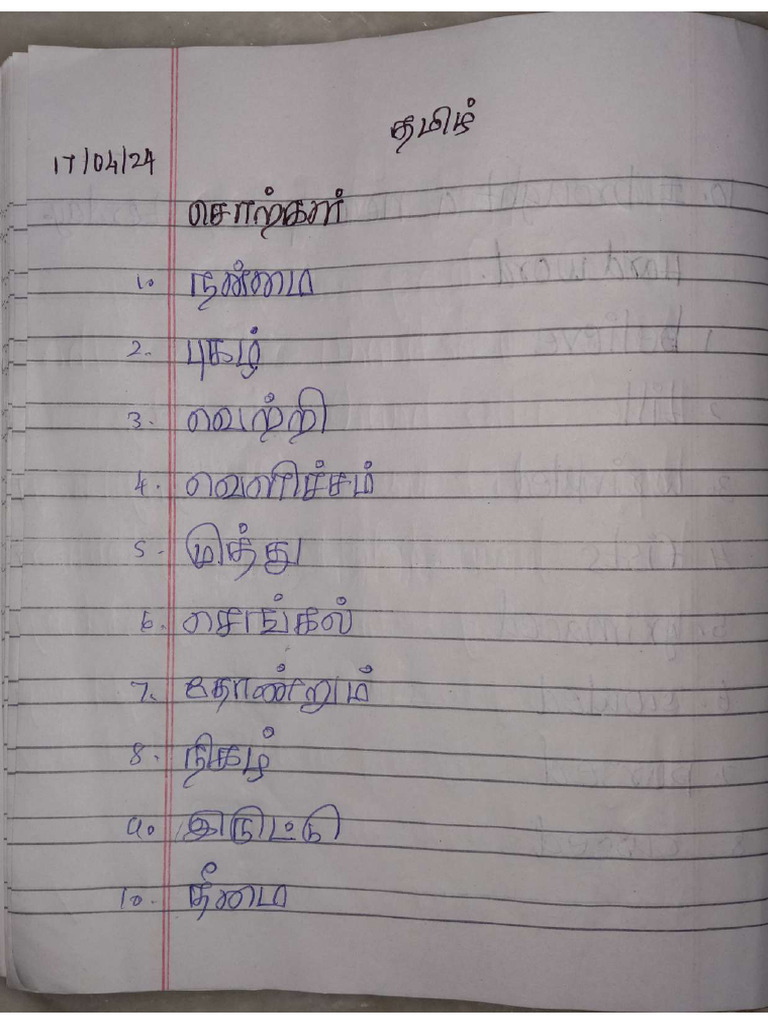 தமிழ்
17/04/24
சொற்கள்
1. நன்மை
2. புகழ்
3. வெற்றி
4. வெளிச்சம்
5.
6. செங்கல்
7. தோன்றும்
8. நிகழ்
9.
10. தீமை